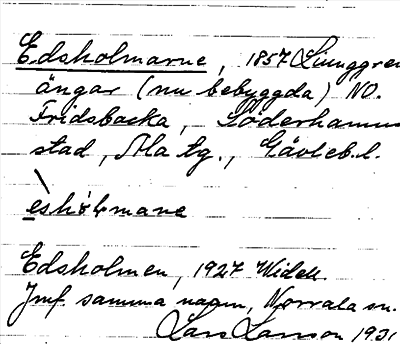 Edsholmarne, 1857 Ljunggren
ängar (nu bebyggda) NO.
Fridsbacka, Söderhamns
stad, Ala tg., Gävleb. l.
èshɵlmane
Edsholmen, 1927 Widell
Jmf. samma namn, Norrala sn.
Lars Larsson 1931